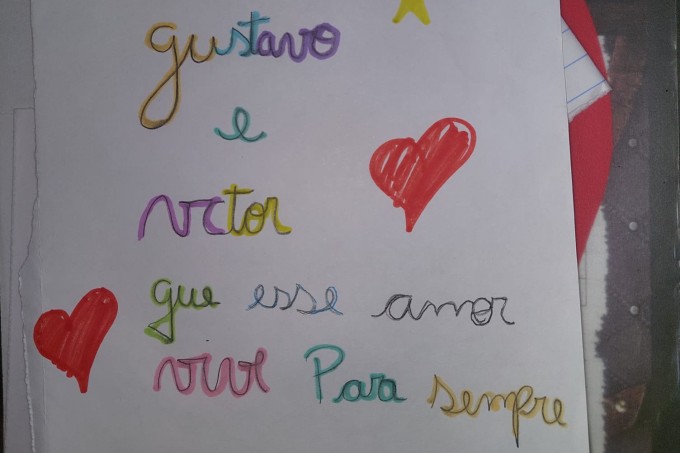 gustavo
e
victor
que esse amor
vive Para sempre